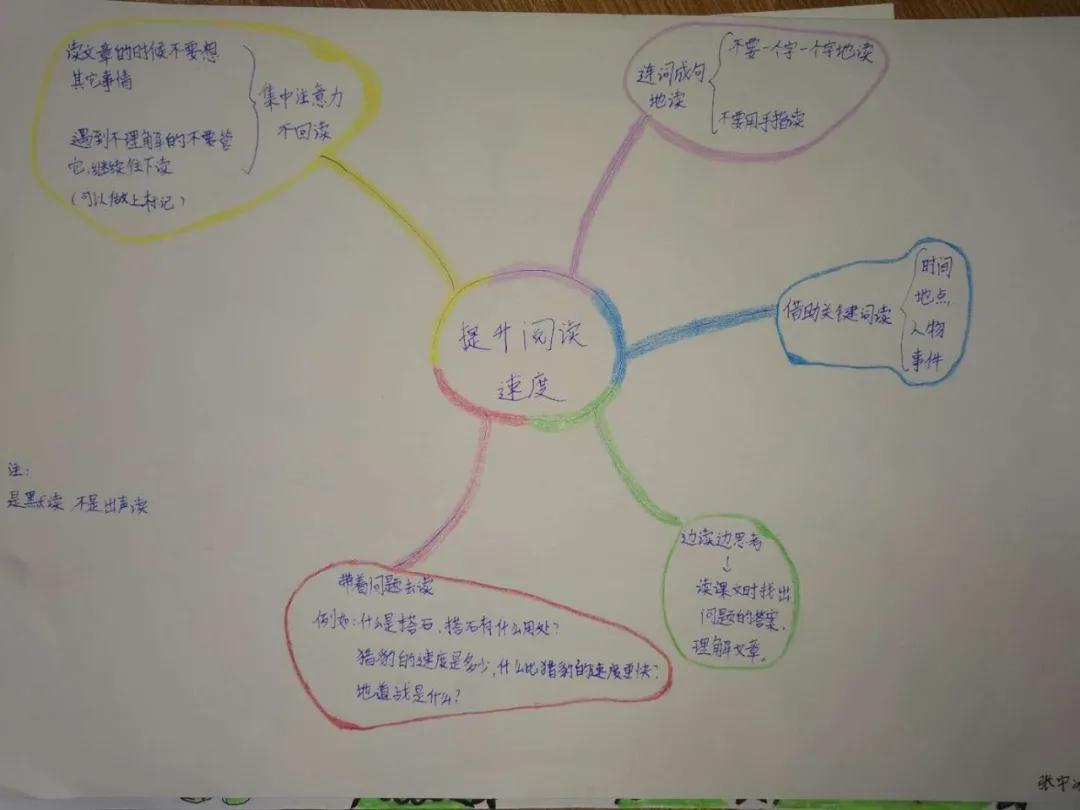 提升阅读
速度
读文章的时候不要想
其它事情
遇到不理解的不要管
它,继续往下读
(可以做上标记)
集中注意力
不回读
连词成句
地读
不要一个字一个字地读
不要用手指读
借助关键词读
时间
地点
人物
事件
边读边思考
↓
读课文时找出
问题的答案,
理解文章。
带着问题去读
例如:什么是搭石,搭石有什么用处?
猎豹的速度是多少,什么比猎豹的速度更快?
地道战是什么?
注:
是默读,不是出声读
张宇